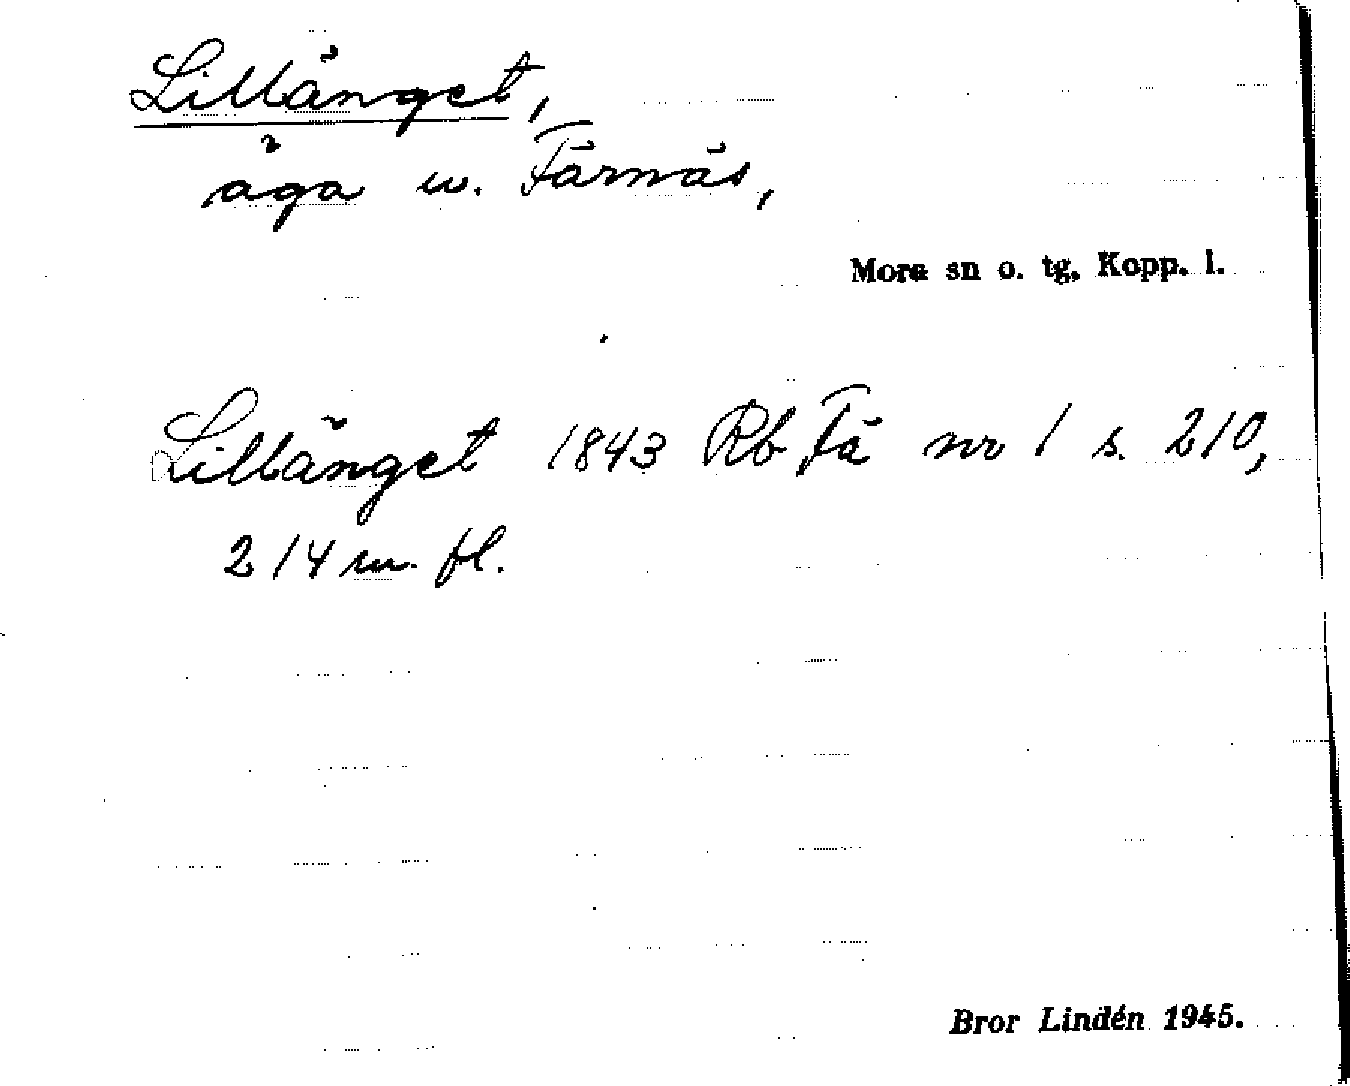 Lillänget,
äga u. Färnäs,
Mora sn o. tg. Kopp. l.
Lillänget 1843 Rb Fä nr 1 s. 210,
214 m. fl.
Bror Lindén 1945.